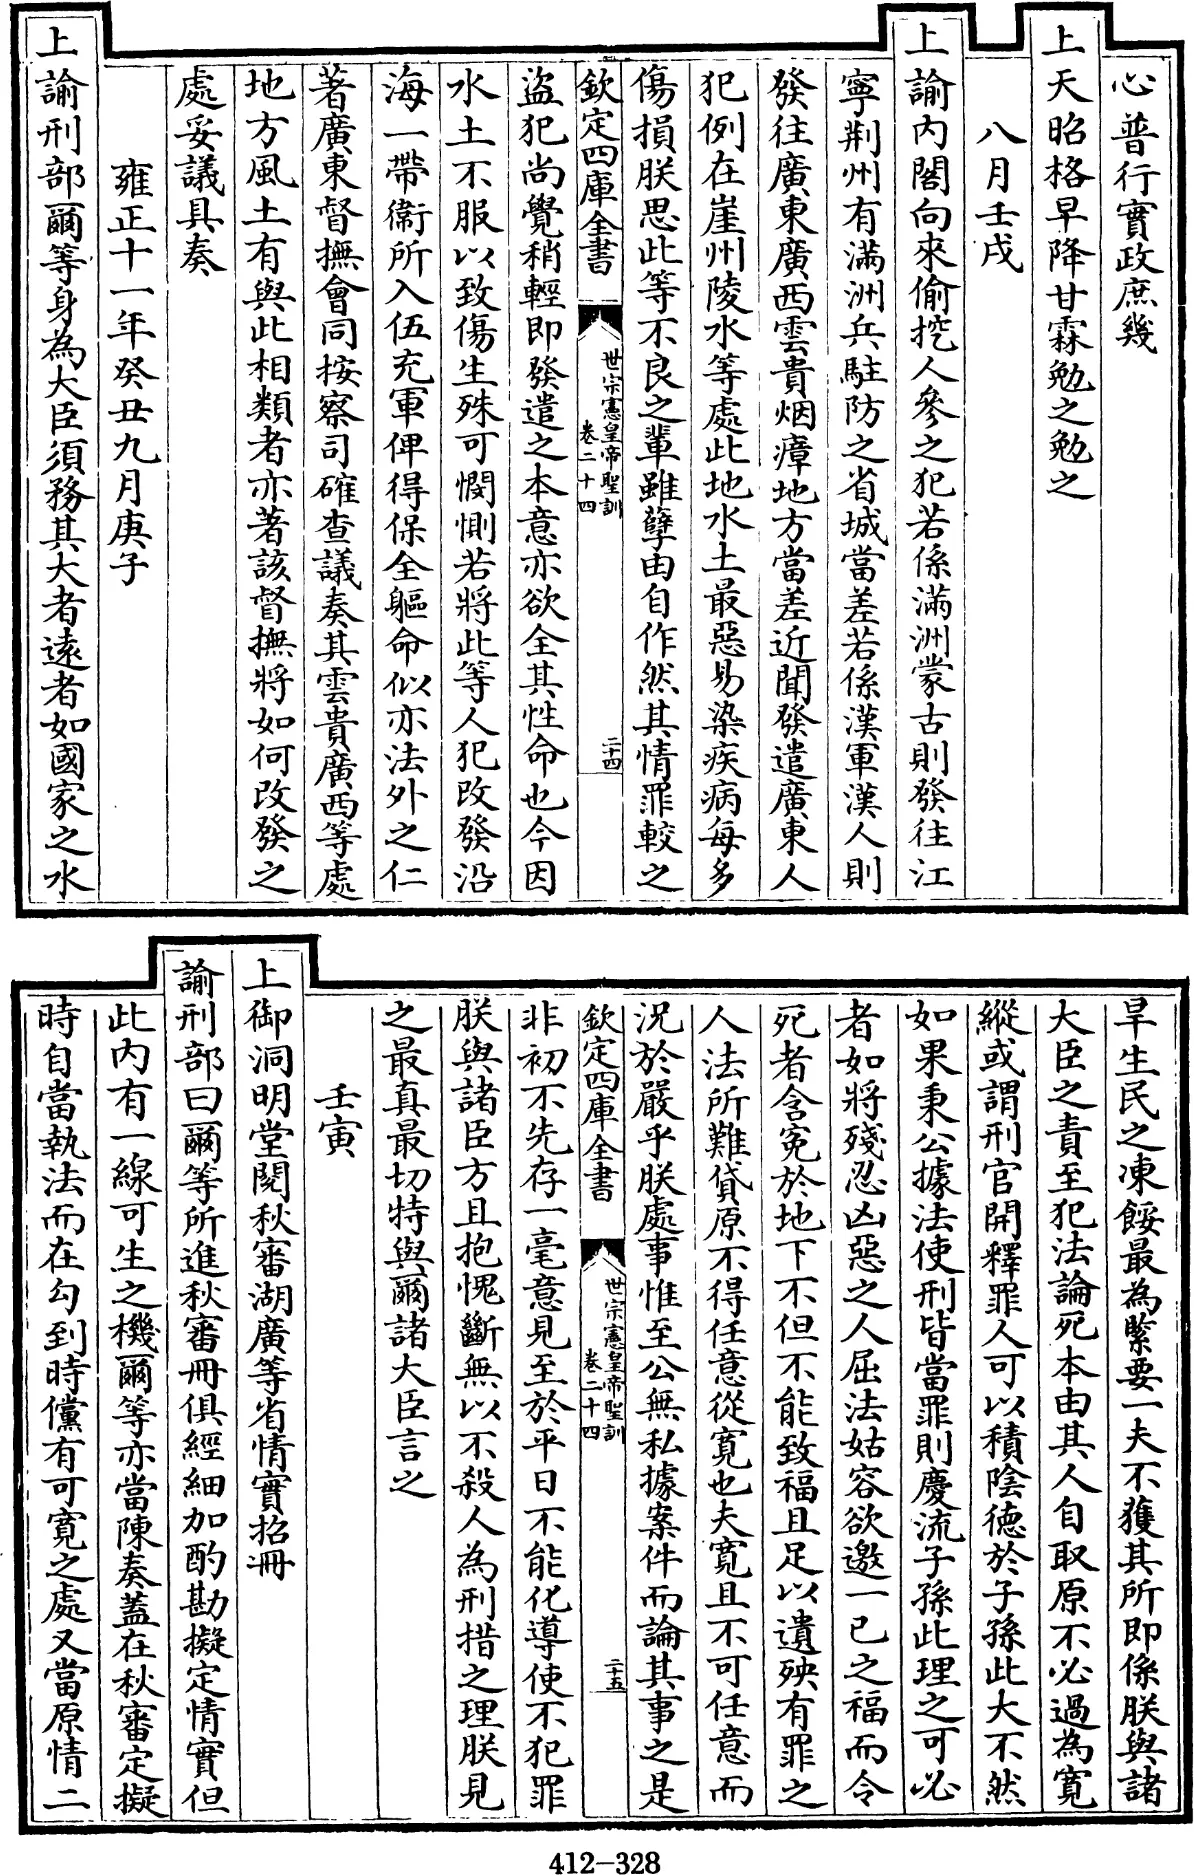 心普行實政庶幾
上天昭格早降甘霖勉之勉之
八月壬戌
上諭内閣向來偷挖人參之犯若係滿洲蒙古則發往江
寧荆州有滿洲兵駐防之省城當差若係漢軍漢人則
發往廣東廣西雲貴烟瘴地方當差近聞發遣廣東人
犯例在崖州陵水等處此地水土最惡易染疾病每多
傷損朕思此等不良之輩雖孽由自作然其情罪較之
欽定四庫全書
世宗憲皇帝聖訓
卷二十四
二十四
盜犯尚覺稍輕即發遣之本意亦欲全其性命也今因
水土不服以致傷生殊可憫惻若將此等人犯改發沿
海一帶衛所入伍充軍俾得保全軀命似亦法外之仁
著廣東督撫會同按察司確查議奏其雲貴廣西等處
地方風土有與此相類者亦著該督撫將如何改發之
處妥議具奏
雍正十一年癸丑九月庚子
上諭刑部爾等身為大臣須務其大者遠者如國家之水
旱生民之凍餒最為緊要一夫不獲其所即係朕與諸
大臣之責至犯法論死本由其人自取原不必過為寛
縱或謂刑官開釋罪人可以積陰德於子孫此大不然
如果秉公據法使刑皆當罪則慶流子孫此理之可必
者如將殘忍凶惡之人屈法姑容欲邀一己之福而令
死者含寃於地下不但不能致福且足以遺殃有罪之
人法所難貸原不得任意從寛也夫寛且不可任意而
況於嚴乎朕處事惟至公無私據案件而論其事之是
欽定四庫全書
世宗憲皇帝聖訓
卷二十四
二十五
非初不先存一毫意見至於平日不能化導使不犯罪
朕與諸臣方且抱愧斷無以不殺人為刑措之理朕見
之最真最切特與爾諸大臣言之
壬寅
上御洞明堂閱秋審湖廣等省情實招冊
諭刑部曰爾等所進秋審冊俱經細加酌勘擬定情實但
此内有一線可生之機爾等亦當陳奏蓋在秋審定擬
時自當執法而在勾到時儻有可寛之處又當原情二
412-328